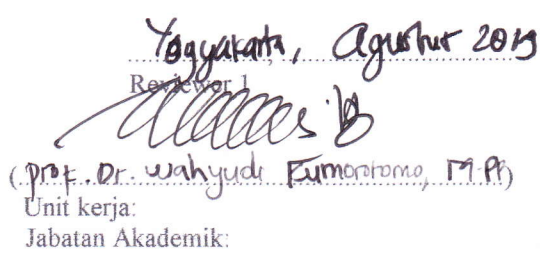 Yogyakarta, Agustus 2019
Reviewer 1
(prof. Dr. Wahyudi Kumorotomo, M.PP)
Unit kerja:
Jabatan Akademik: